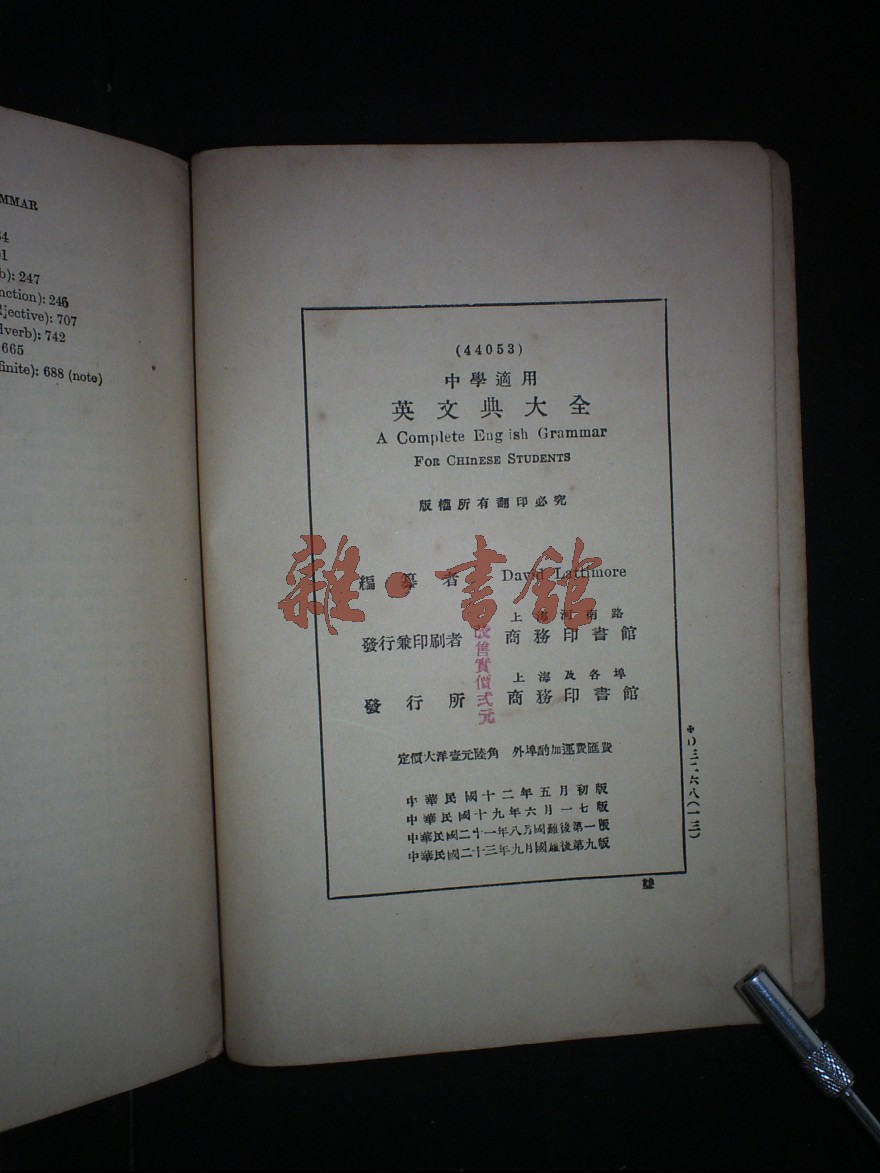 MMAR
247
246
jective): 707
dverb): 742
665
finite): 688 (note)
(44053)
中學適用
英文典大全
A Complete Eng ish Grammar
FOR CHINESE STUDENTS
版權所有翻印必究
編纂者 David Lattimore
上海河南路
發行兼印刷者 商務印書館
上海及各埠
發行所 商務印書館
改售實價弍元
定價大洋壹元陸角 外埠酌加運費匯費
中華民國十二年五月初版
中華民國十九年六月一七版
中華民國二十一年八月國難後第一版
中華民國二十三年九月國難後第九版
D三二六八(一三)
雜·書館